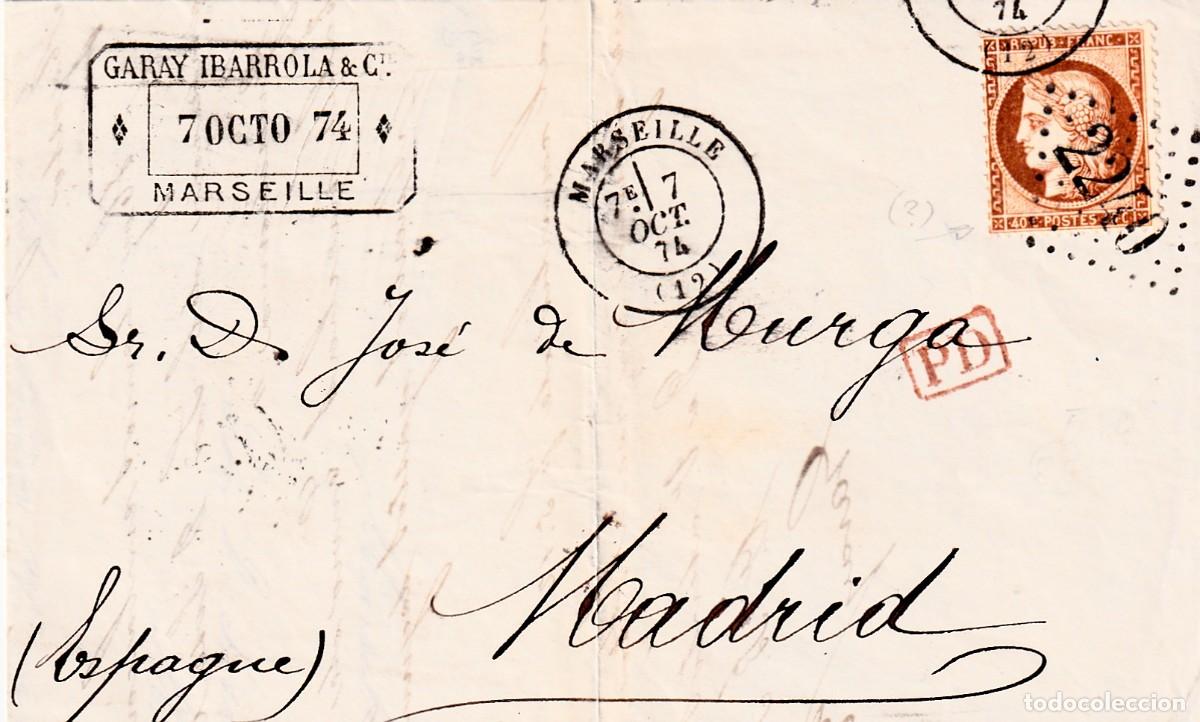 GARAY IBARROLA & Cie.
7 OCTO 74
MARSEILLE
74
(12)
MARSEILLE
7E 7
OCT.
74
(12)
REPUB. FRANC.
40 C POSTES 40 C
2240
(2)
PD
Sr. D. José de Murga
Madrid
(Espagne)
todocoleccion